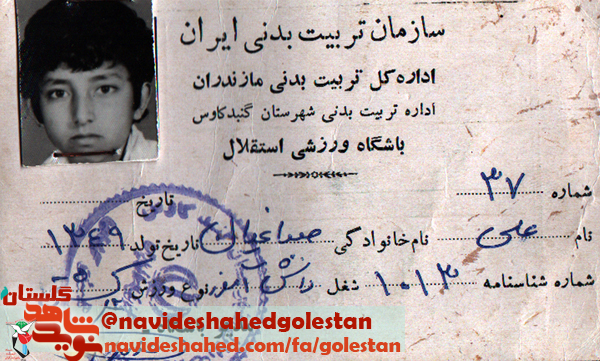 سازمان تربیت بدنی ایران
اداره کل تربیت بدنی مازندران
اداره تربیت بدنی شهرستان گنبدکاوس
باشگاه ورزشی استقلال
شماره ۳۷
تاریخ
نام علی نام خانوادگی تاریخ تولد ۱۳۴۹
شماره شناسنامه ۱۰۱۳ شغل دانش آموز نوع ورزش
نوید شاهد گلستان
@navideshahedgolestan
navideshahed.com/fa/golestan